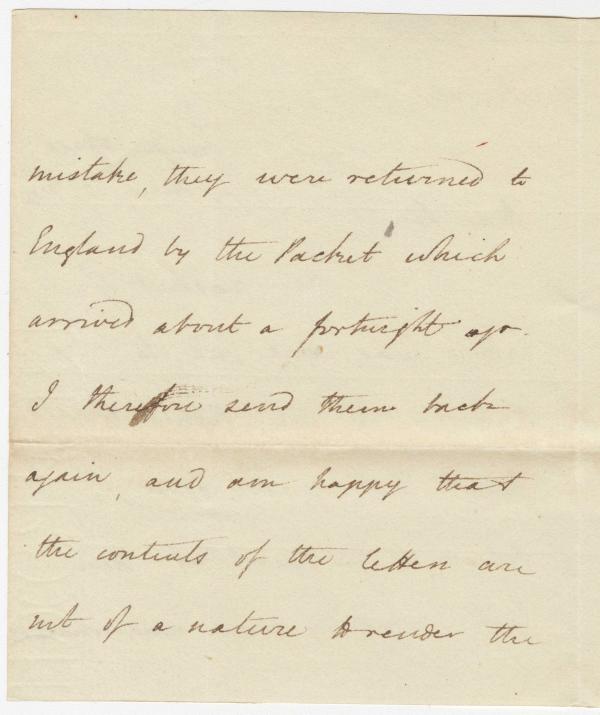 mistake, they were returned to
England by the Packet which
arrived about a fortnight ago.
I therefore send them back
again, and am happy that
the contents of the letters are
not of a nature to render the